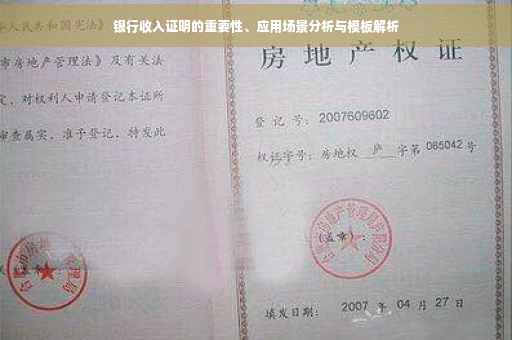 银行收入证明的重要性、应用场景分析与模板解析
人民共和国宪法》
市房地产管理法》及有关法
定，对权利人申请登记本证所
审查属实，准予登记，特发此
房地产权证
登记号：2007609602
权证字号：房地权 庐 字第 085042 号
(盖章)：
填发日期：2007 年 04 月 27 日